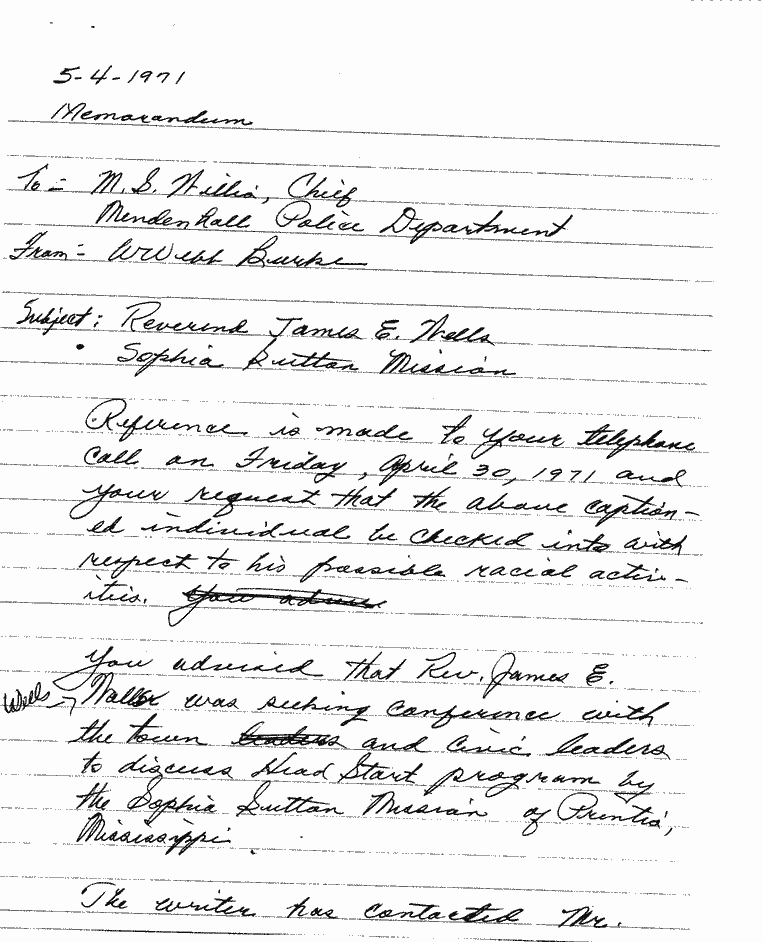 5-4-1971
Memorandum
To - M. S. Willis, Chief
Mendenhall Police Department
From - W Webb Burke
Subject: Reverend James E. Wells
Sophia Sutton Mission
Reference is made to your telephone
call on Friday, April 30, 1971 and
your request that the above caption-
ed individual be checked into with
respect to his possible racial activ-
ities. You advise
You advised that Rev. James E.
Wells → Waller was seeking conference with
the town leaders and civic leaders
to discuss Head Start program by
the Sophia Sutton Mission of Prentis,
Mississippi.
The writer has contacted Mr.